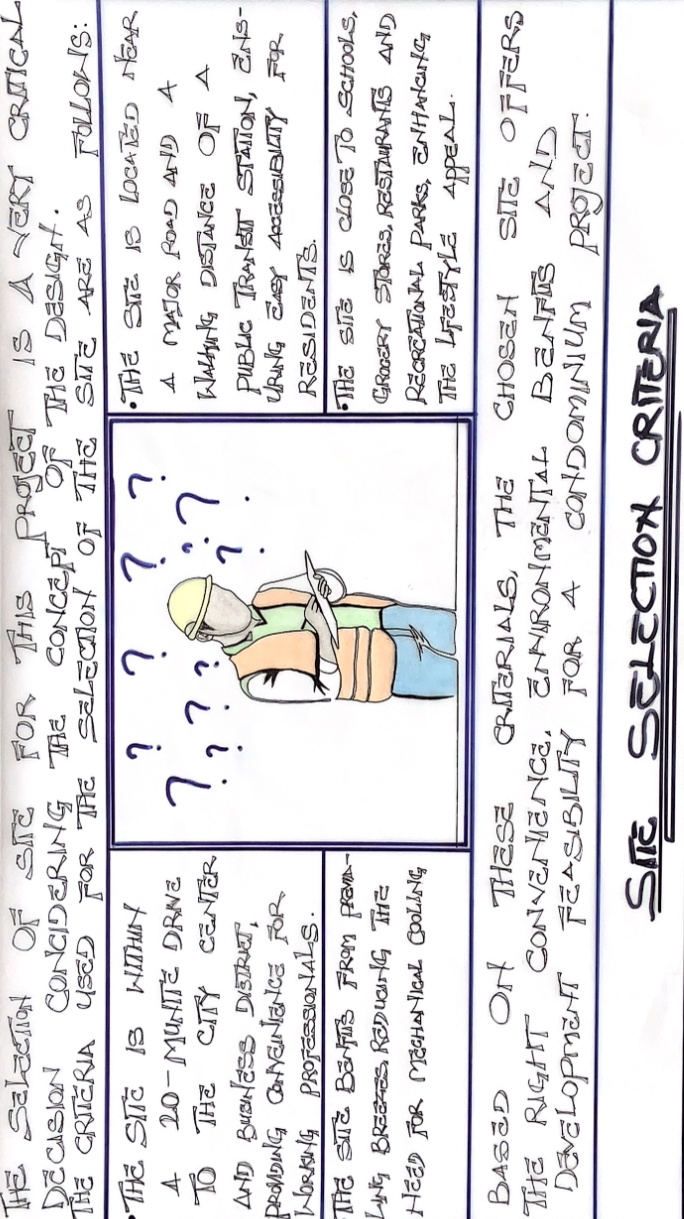 THE SELECTION OF SITE FOR THIS PROJECT IS A VERY CRITICAL
DECISION CONCIDERING THE CONCEPT OF THE DESIGN.
THE CRITERIA USED FOR THE SELECTION OF THE SITE ARE AS FOLLOWS:
•THE SITE IS WITHIN
A 20-MUNITE DRIVE
TO THE CITY CENTER
AND BUSINESS DISTRICT,
PROVIDING FOR
WORKING PROFESSIONALS.
•THE SITE BENFITS FROM
LING BREEZES, REDUCING THE
NEED FOR MECHANICAL COOLING
•THE SITE IS LOCATED NEAR
A MAJOR ROAD AND A
WALKING DISTANCE OF A
PUBLIC TRANSIT STATION, ENS-
URING EASY ACCESSIBILITY FOR
RESIDENTS.
•THE SITE IS CLOSE TO SCHOOLS,
GROCERY STORES, RESTAURANTS AND
RECREATIONAL PARKS, ENHANCING
THE LIFESTYLE APPEAL.
BASED ON THESE CRITERIALS, THE CHOSEN SITE OFFERS
THE RIGHT CONVENIENCE, ENVIRONMENTAL BENFITS AND
DEVELOPMENT FEASIBILITY FOR A CONDOMINIUM PROJECT.
SITE SELECTION CRITERIA